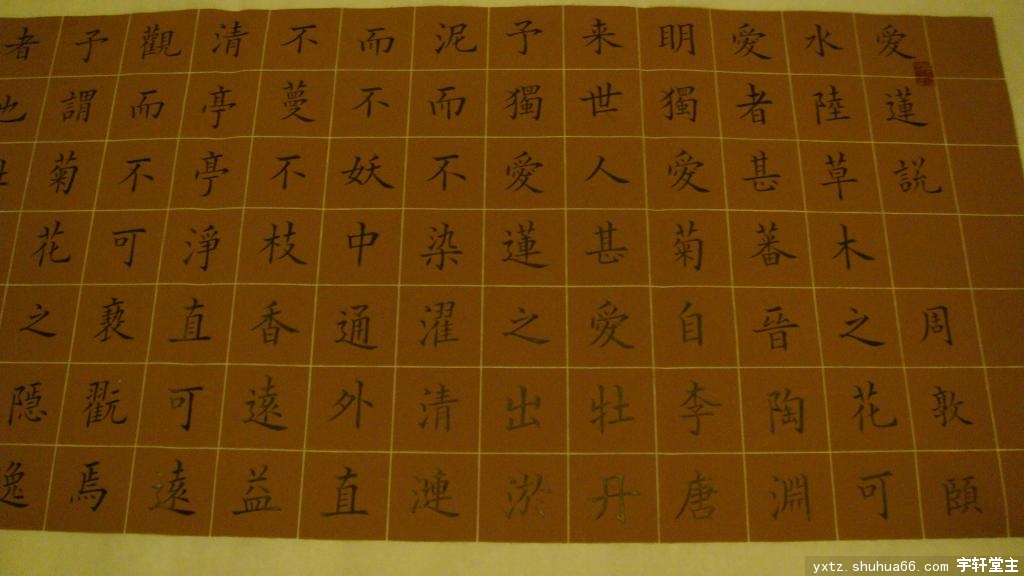 愛蓮說 周敦頤
水陸草木之花可
愛者甚蕃晉陶淵
明獨愛菊自李唐
来世人甚愛牡丹
予獨愛蓮之出淤
泥而不染濯清漣
而不妖中通外直
不蔓不枝香遠益
清亭亭淨直可遠
觀而不可褻翫焉
予謂菊花之隱逸
者也
yxtz.shuhua66.com 宇轩堂主